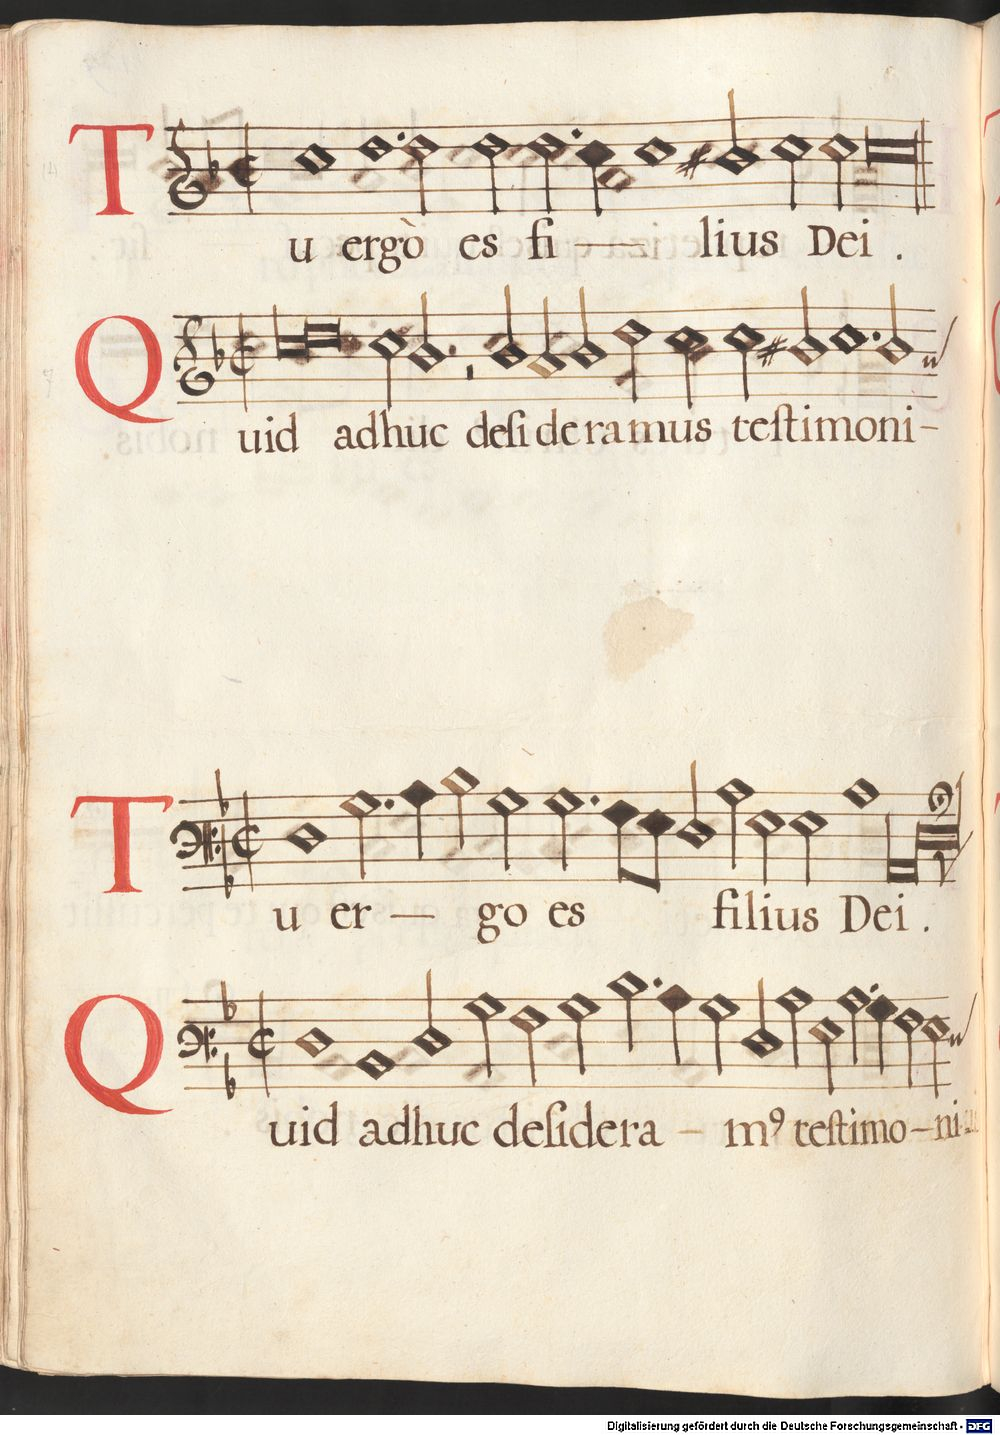 Tu ergò es fi - - lius Dei .
Quid adhuc desideramus testimoni-
Tu er - go es filius Dei .
Quid adhuc desidera - m9 testimo-ni
Digitalisierung gefördert durch die Deutsche Forschungsgemeinschaft - DFG